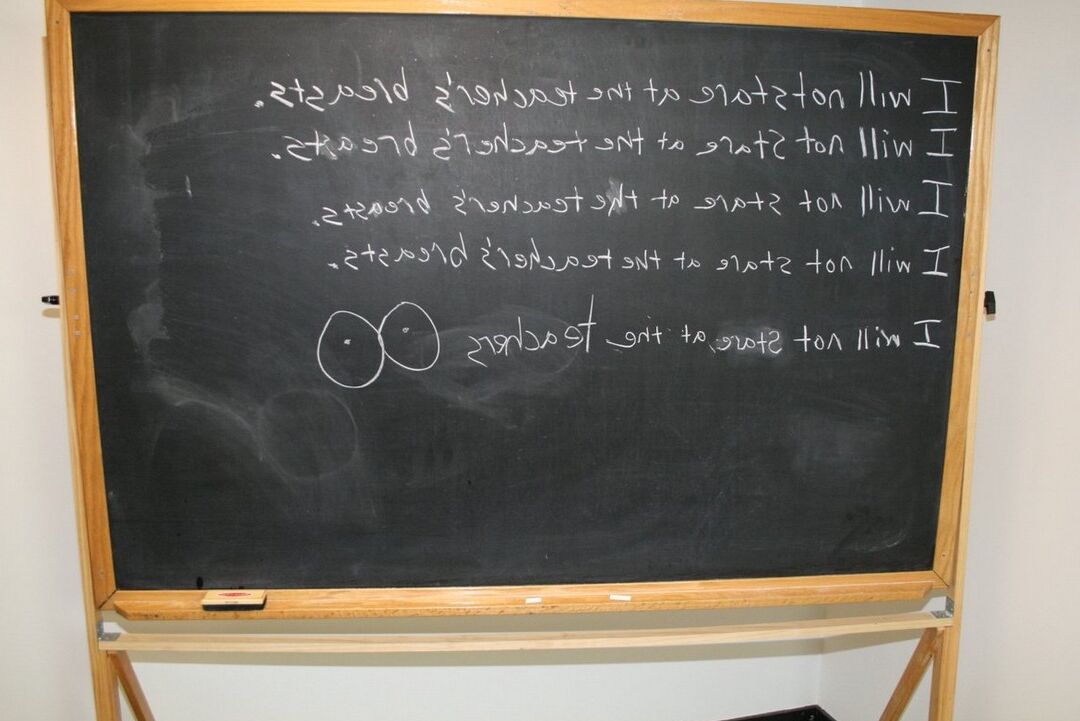 I will not stare at the teacher's breasts.
I will not stare at the teacher's breasts.
I will not stare at the teacher's breasts.
I will not stare at the teacher's breasts.
I will not stare at the teachers